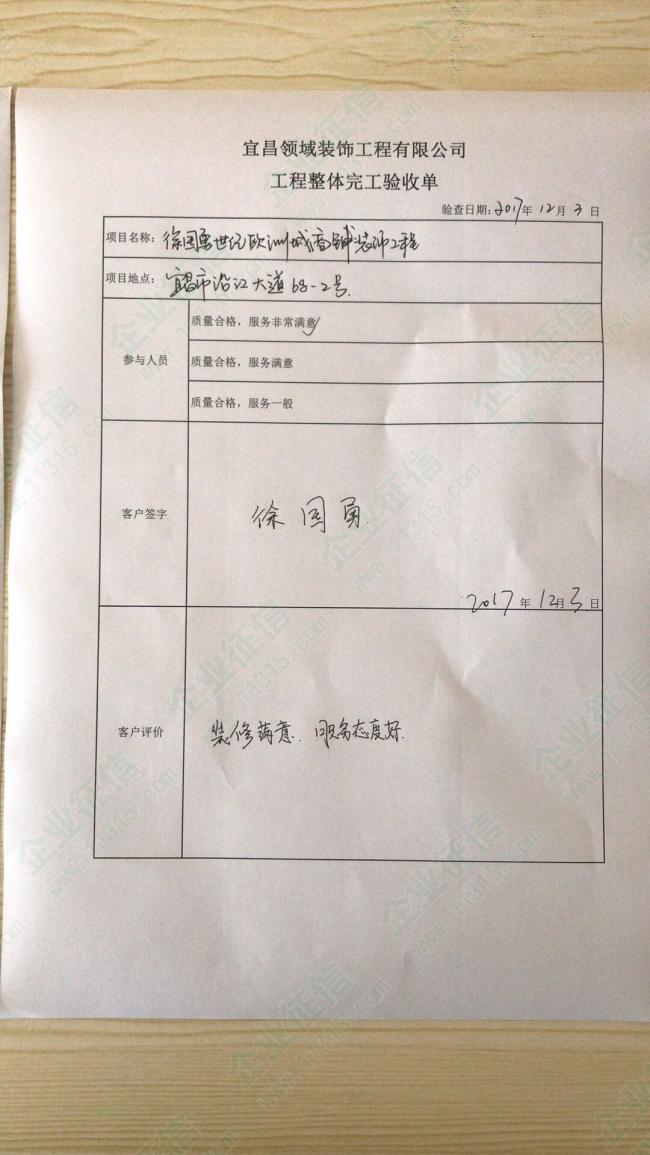 宜昌领域装饰工程有限公司
工程整体完工验收单
验查日期:2017年12月3日
项目名称:徐国勇世纪欧洲城商铺装饰工程
项目地点:宜昌市沿江大道68-2号.
参与人员
质量合格,服务非常满意
质量合格,服务满意
质量合格,服务一般
客户签字
徐国勇
2017年12月3日
客户评价
装修满意.服务态度好.
企业征信
www.11315.com